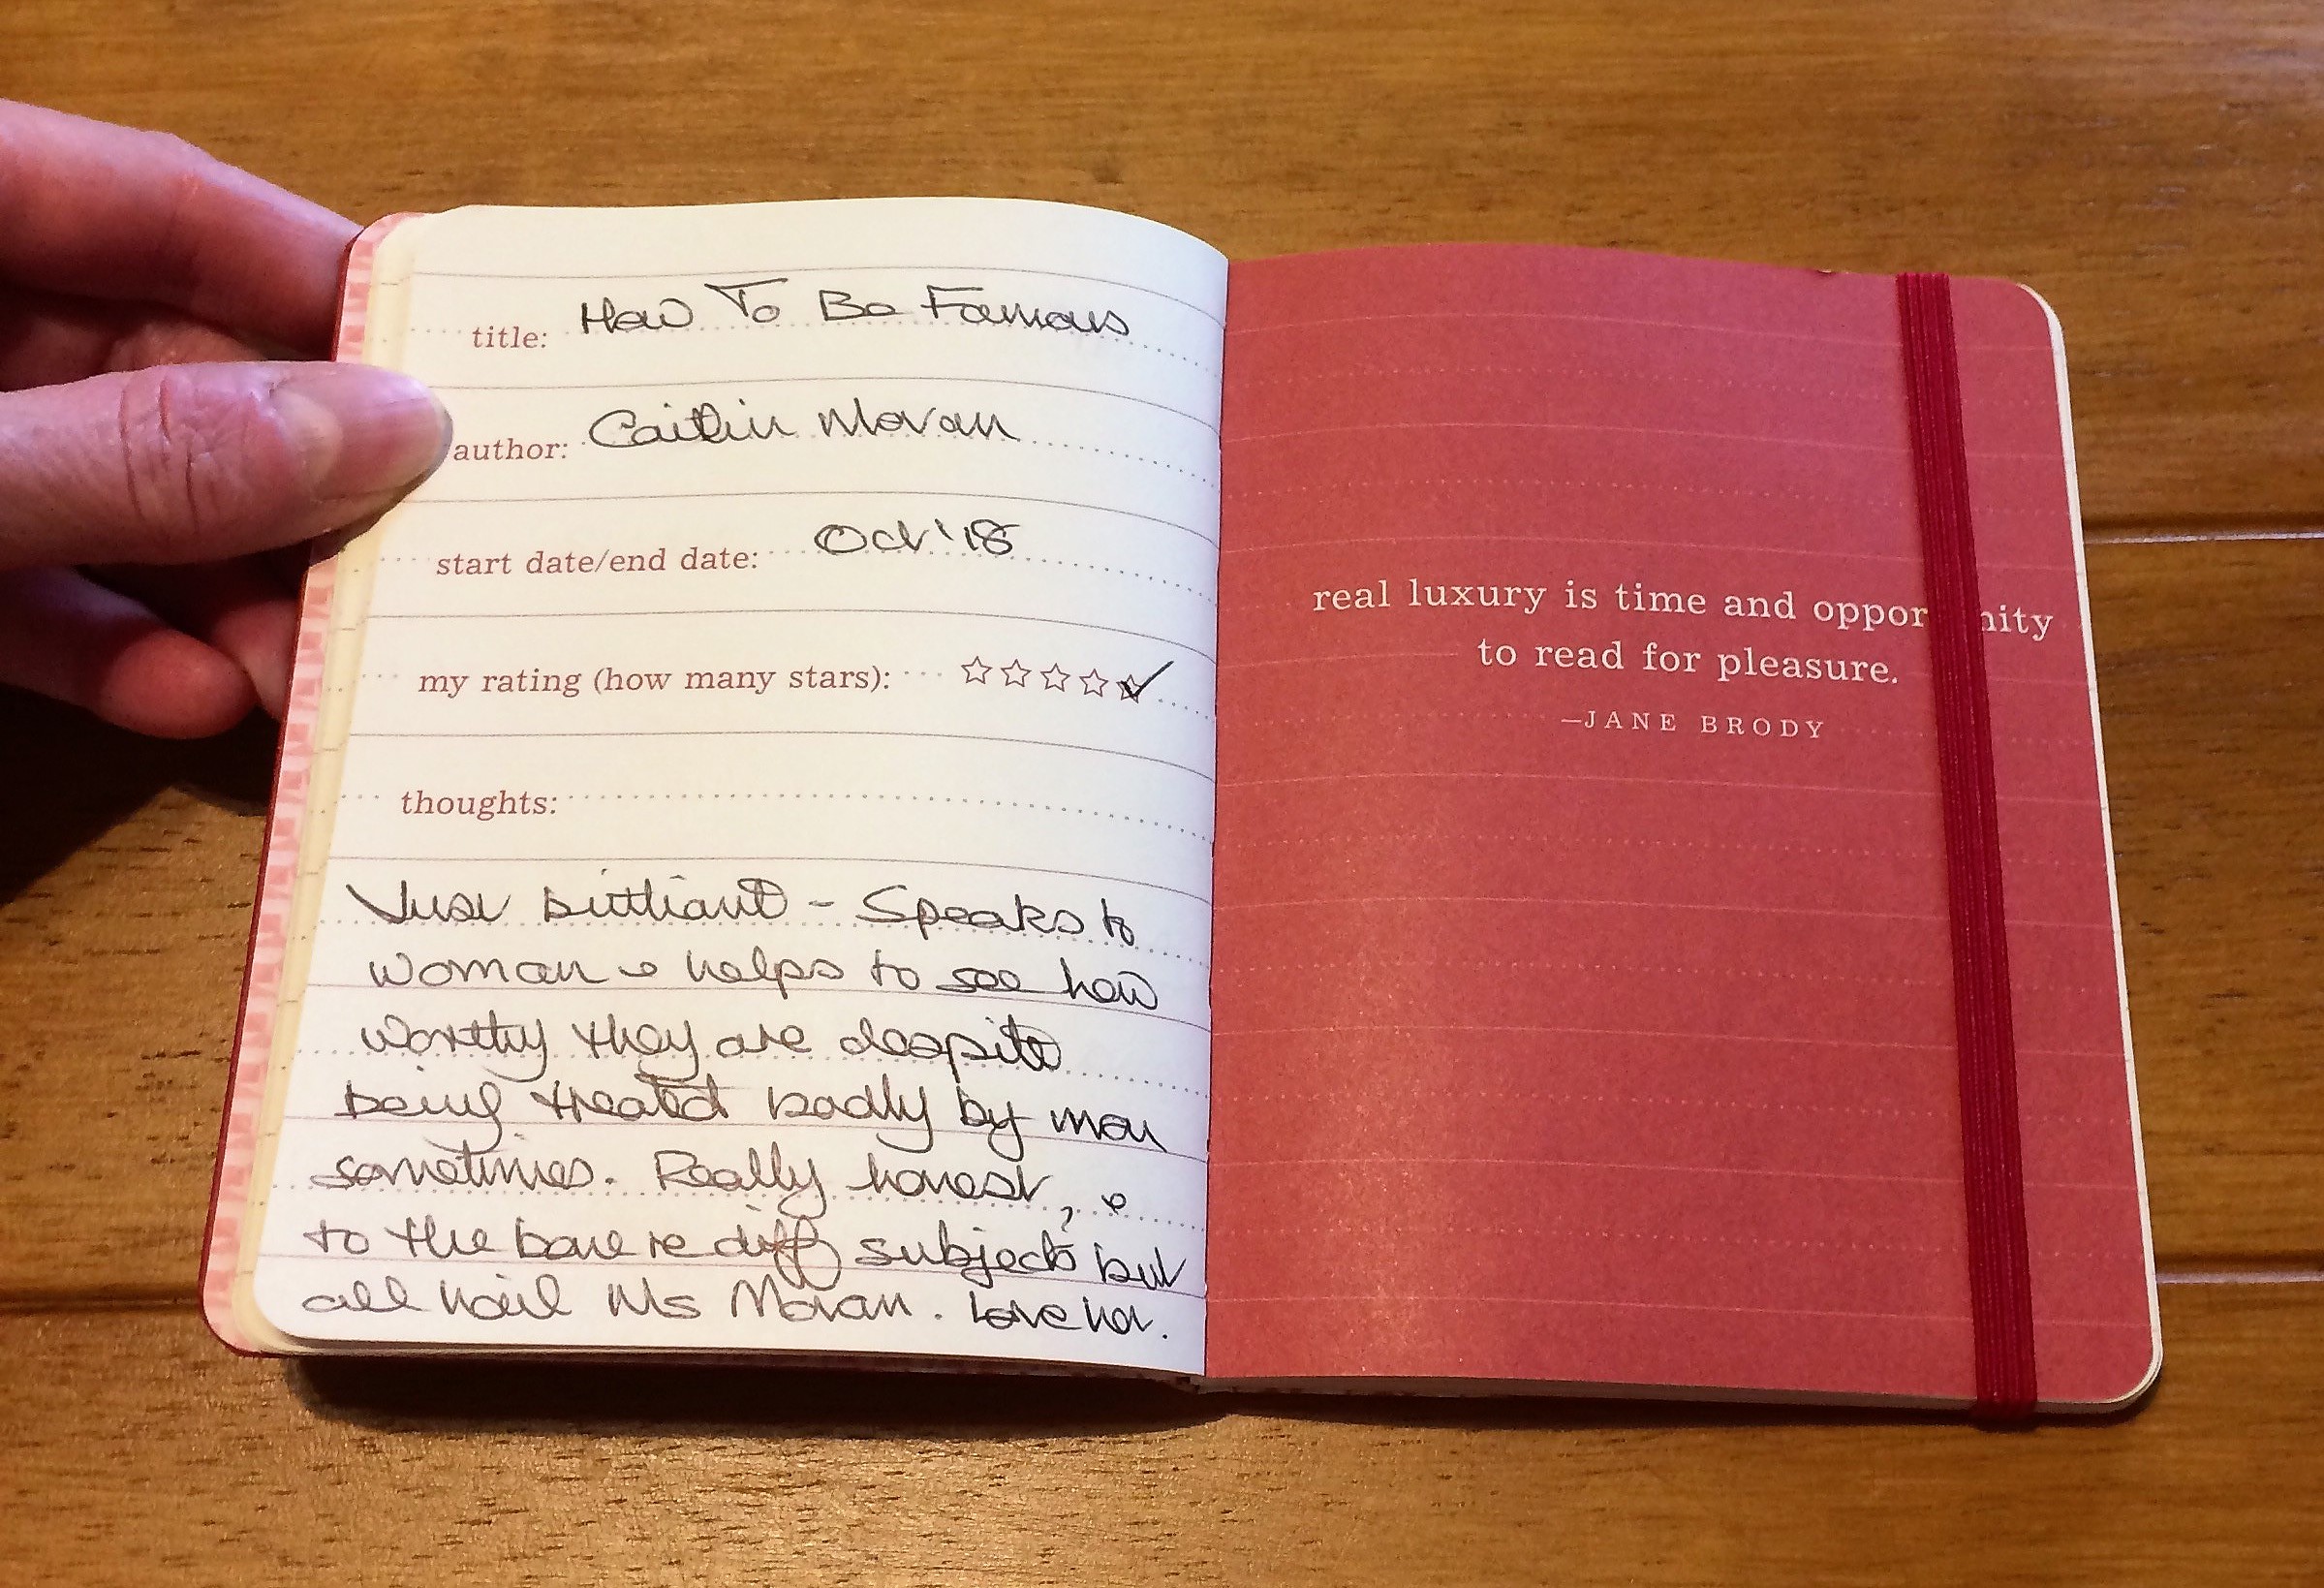 title: How To Be Famous
author: Caitlin Moran
start date/end date: Oct '18
my rating (how many stars):
thoughts:
Just brilliant - Speaks to
woman & helps to see how
worthy they are despite
being treated badly by men
sometimes. Really honest, &
to the bone re diff subjects but
all hail Ms Moran. Love her.
real luxury is time and oppor nity
to read for pleasure.
—JANE BRODY